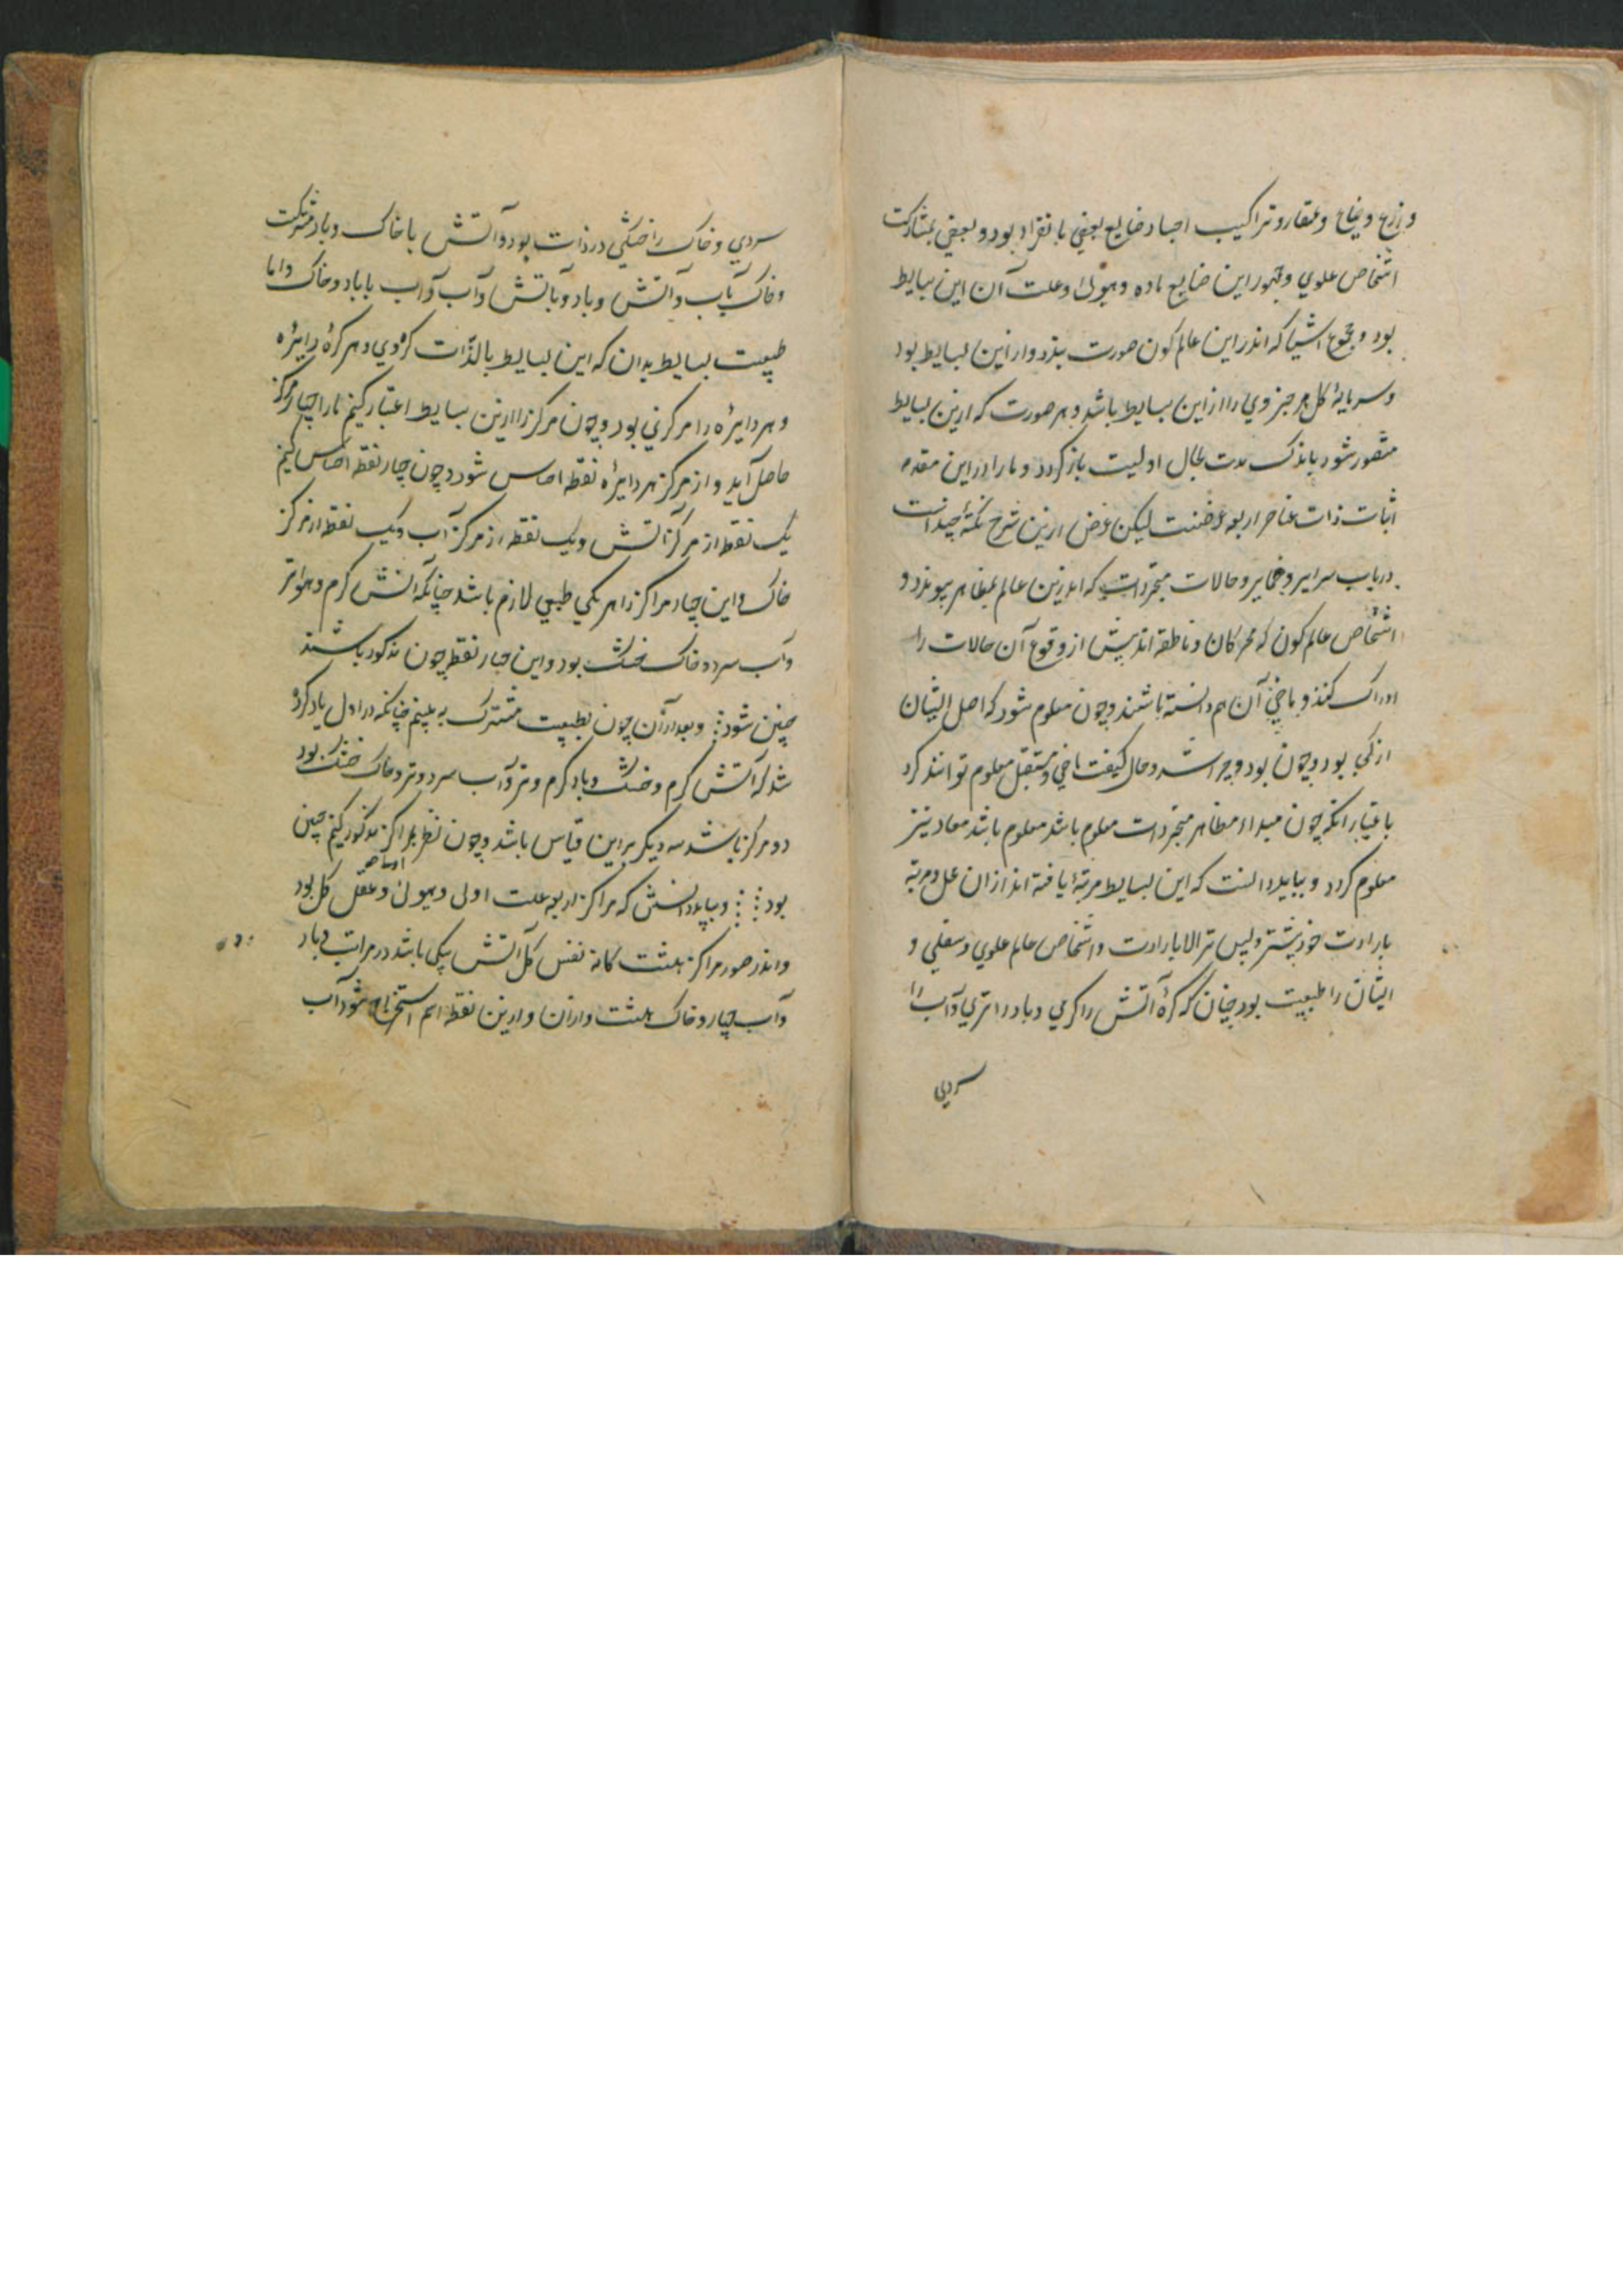 و زرع و ضیاع و عقار و تراکیب اجساد صنایع بعضی بانفراد بود و بعضی بمشارکت
اشخاص علوی و ظهور این صنایع ماده و هیولی و علت آن این بسایط
بود و مجموع اشیا که اندر این عالم کون صورت پذیرد از این بسایط بود
و سرمایهٔ کل هر جزوی را از این بسایط باشد و هر صورت که ازین بسایط
متصور شود باندک مدت بحال اولیت باز گردد و ما را درین مقدمه
اثبات ذات عناصر اربعه غرض نیست لیکن غرض ازین شرح نکتهٔ چند است
در باب سرایر و ضمایر و حالات متجردات که اندرین عالم بمظاهر پیوندد و
اشخاص عالم کون که محرکان و ناطقه اند پیش از وقوع آن حالات را
ادراک کنند و ماضی آن هم دانسته باشند و چون معلوم شود که اصل ایشان
از کی بود و چون بود و چرا شد و حال کیفیت ماضی و مستقبل معلوم توانند کرد
باعتبار آنکه چون مبداء مظاهر متجردات معلوم باشد معلوم باشد معاد نیز
معلوم گردد و بباید دانست که این بسایط مرتبهٔ یافته اند از آن علل و مرتبه
بارادت خود پیشتر و پس تر الا بارادت و اشخاص عالم علوی و سفلی و
ایشان را طبیعت بود چنان که کرهٔ آتش را گرمی و باد را تری و آب را
سردی
سردی و خاک را خشکی در ذات بود و آتش با خاک و باد مشترکت
و خاک بآب و آتش و باد و بآتش و آب و آب با باد و خاک و اما
طبیعت بسایط بدان که این بسایط بالذات کروی و هر کرهٔ را دایرهٔ
و هر دایره را مرکزی بود و چون مرکز را ازین بسایط اعتبار کنیم ما را چهار مرکز
حاصل آید و از مرکز هر دایره نقطه احساس شود و چون چهار نقطه احساس کنیم
یک نقطه از مرکز آتش و یک نقطه از مرکز آب و یک نقطه از مرکز
خاک و این چهار مراکز را هر یکی طبعی لازم باشد چنانکه آتش گرم و هوا تر
و آب سرد و خاک خشک بود و این چهار نقطه چون مذکور باشند
چنین شود ⁝ و بعد از آن چون بطبیعت مشترک به بینیم چنانکه در اول یاد کرده
شد که آتش گرم و خشک و باد گرم و تر و آب سرد و تر و خاک خشک بود
دو مرکز باشد سه دیگر برین قیاس باشد و چون نظر بمراکز مذکور کنیم چنین
بود ⁝⁝ و بباید دانستن که مراکز اربعه علت اولی و هیولی و عقل کل بود
و اندر صور مراکز هشت گانه نفس کل آتش یکی باشد در مراتب و باد
و آب چهار و خاک هشت و از آن و ازین نقطه اسم استخراج شود آب